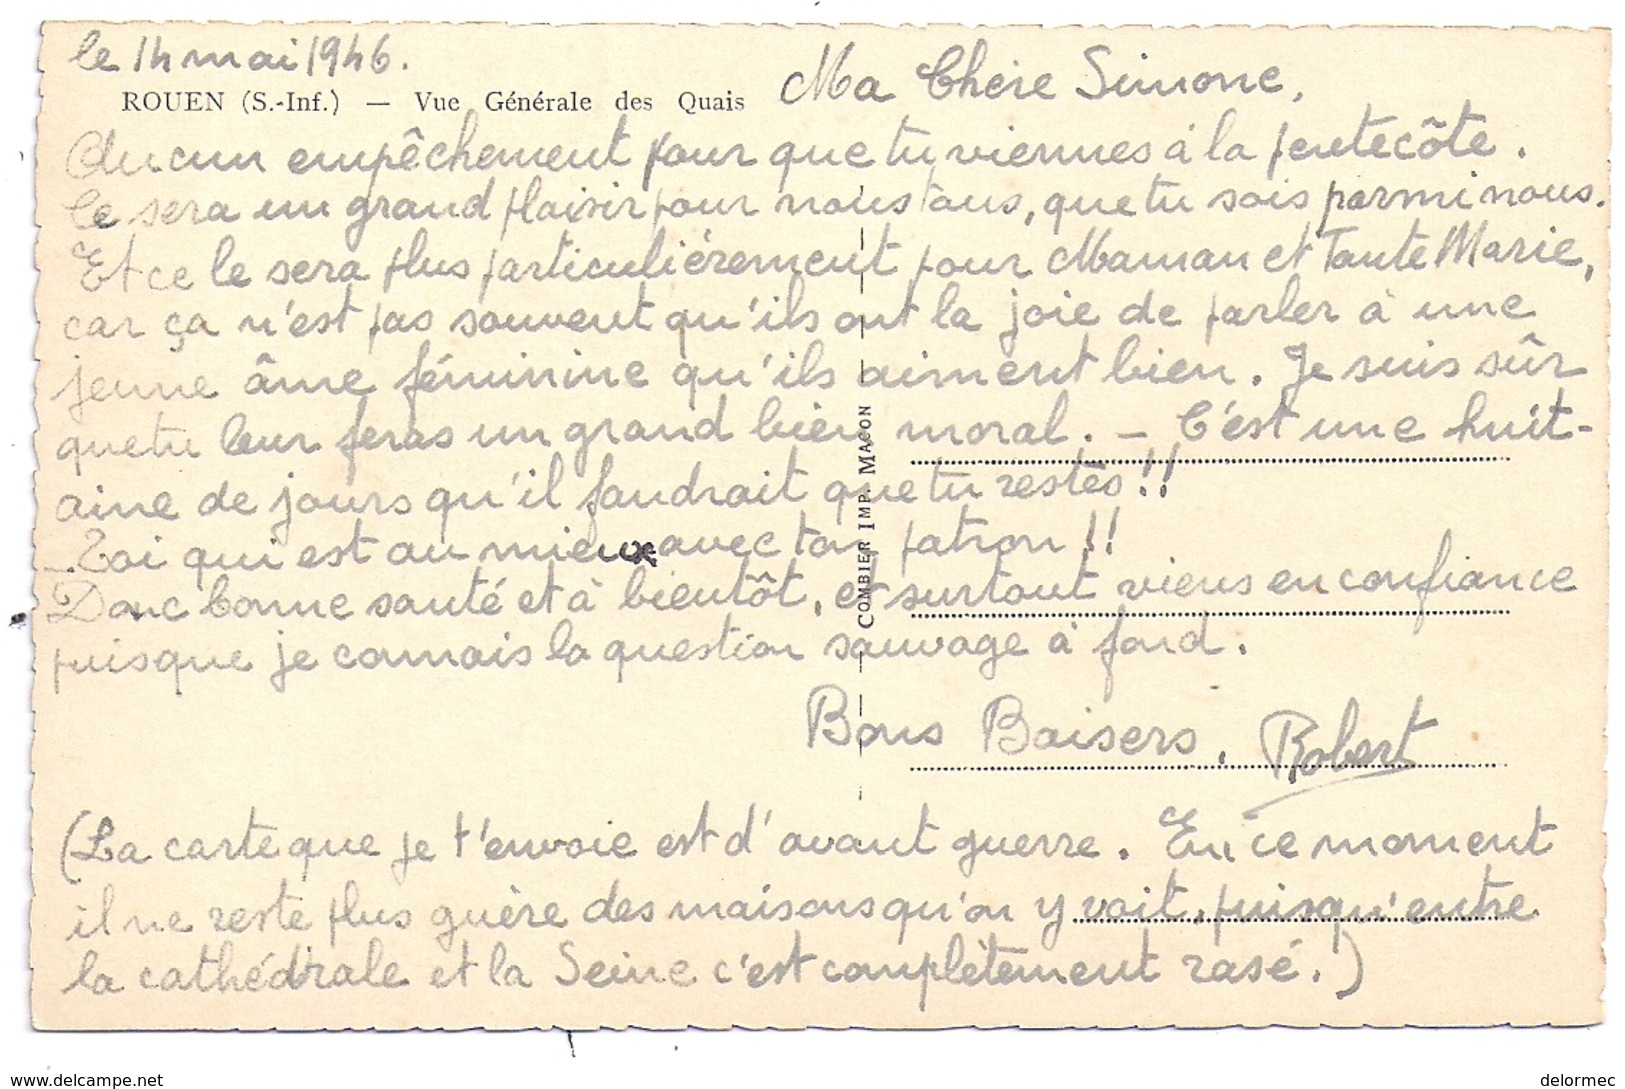 le 14 mai 1946.
ROUEN (S.-Inf.) — Vue Générale des Quais
Ma Chère Simone,
Aucun empêchement pour que tu viennes à la pentecôte.
Ce sera un grand plaisir pour nous tous, que tu sois parmi nous.
Et ce le sera plus particulièrement pour Maman et Tante Marie,
car ça n'est pas souvent qu'ils ont la joie de parler à une
jeune âme féminine qu'ils aiment bien. Je suis sûr
que tu leur feras un grand bien moral. — C'est une huit-
aine de jours qu'il faudrait que tu restes!!
— Toi qui est au mieux avec ton patron!!
Donc bonne santé et à bientôt, et surtout viens en confiance
puisque je connais la question sauvage à fond.
Bons Baisers, Robert
(La carte que je t'envoie est d'avant guerre. En ce moment
il ne reste plus guère des maisons qu'on y voit, puisqu'entre
la cathédrale et la Seine c'est complètement rasé.)
COMBIER IMP. MACON
www.delcampe.net
delormec